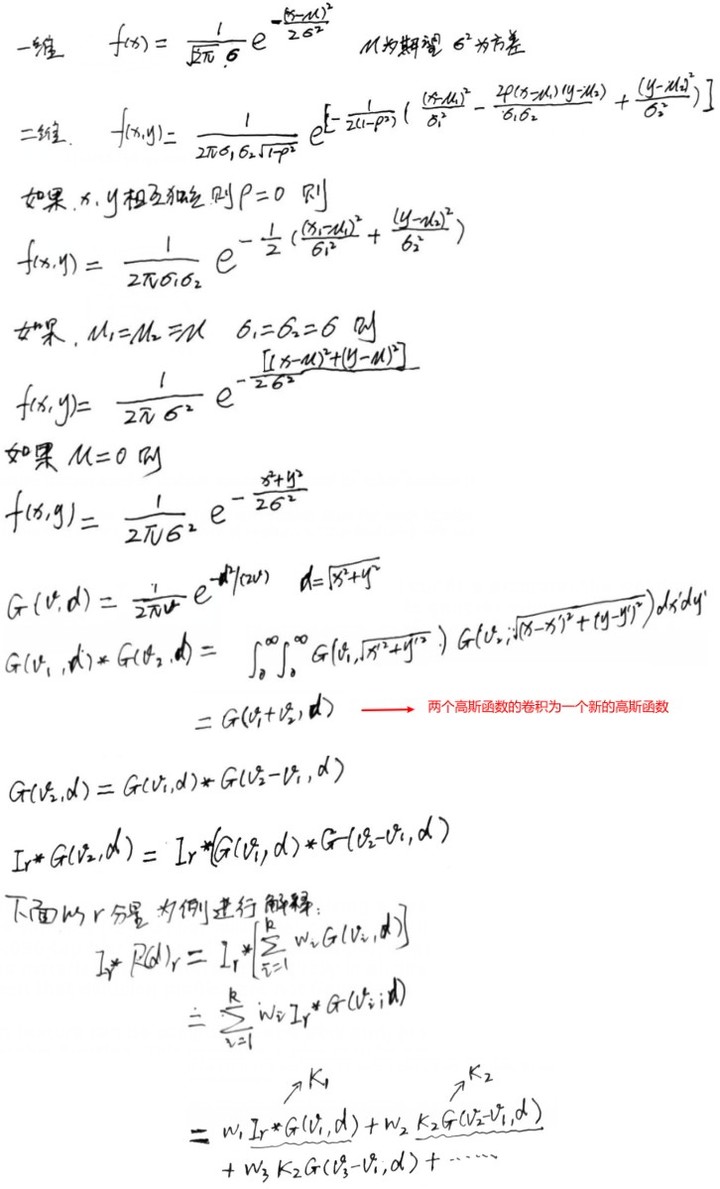 一维 f(x) = 1/(√2π σ) e^{-(x-μ)²/2σ²} μ为期望 σ²为方差
二维. f(x,y) = 1/(2πσ₁σ₂√(1-ρ²)) e^{[-1/(2(1-ρ²)) ((x-μ₁)²/σ₁² - 2ρ(x-μ₁)(y-μ₂)/σ₁σ₂ + (y-μ₂)²/σ₂²)]}
如果 x, y 相互独立 则 ρ=0 则
f(x,y) = 1/(2πσ₁σ₂) e^{-1/2 ((x₁-μ₁)²/σ₁² + (y-μ₂)²/σ₂²)}
如果, μ₁=μ₂=μ σ₁=σ₂=σ 则
f(x,y) = 1/(2πσ²) e^{-[(x-μ)²+(y-μ)²]/2σ²}
如果 μ=0 则
f(x,y) = 1/(2πσ²) e^{-(x²+y²)/2σ²}
G(v,d) = 1/(2πv) e^{-d²/(2v)} d=√(x²+y²)
G(v₁,d)*G(v₂,d) = ∫₀^∞∫₀^∞ G(v₁,√(x'²+y'²)) G(v₂,√((x-x')²+(y-y')²)) dx'dy'
= G(v₁+v₂,d) → 两个高斯函数的卷积为一个新的高斯函数
G(v₂,d) = G(v₁,d)*G(v₂-v₁,d)
Iᵣ*G(v₂,d) = Iᵣ*(G(v₁,d)*G(v₂-v₁,d)
下面以 r 分量 为例进行解释:
Iᵣ* R(d)ᵣ = Iᵣ*[∑_{i=1}^{k} wᵢG(vᵢ,d)]
= ∑_{i=1}^{k} wᵢIᵣ*G(vᵢ,d)
↗K₁ ↗K₂
= w₁Iᵣ*G(v₁,d) + w₂ K₂G(v₂-v₁,d)
+ w₃ K₂G(v₃-v₁,d) + ······